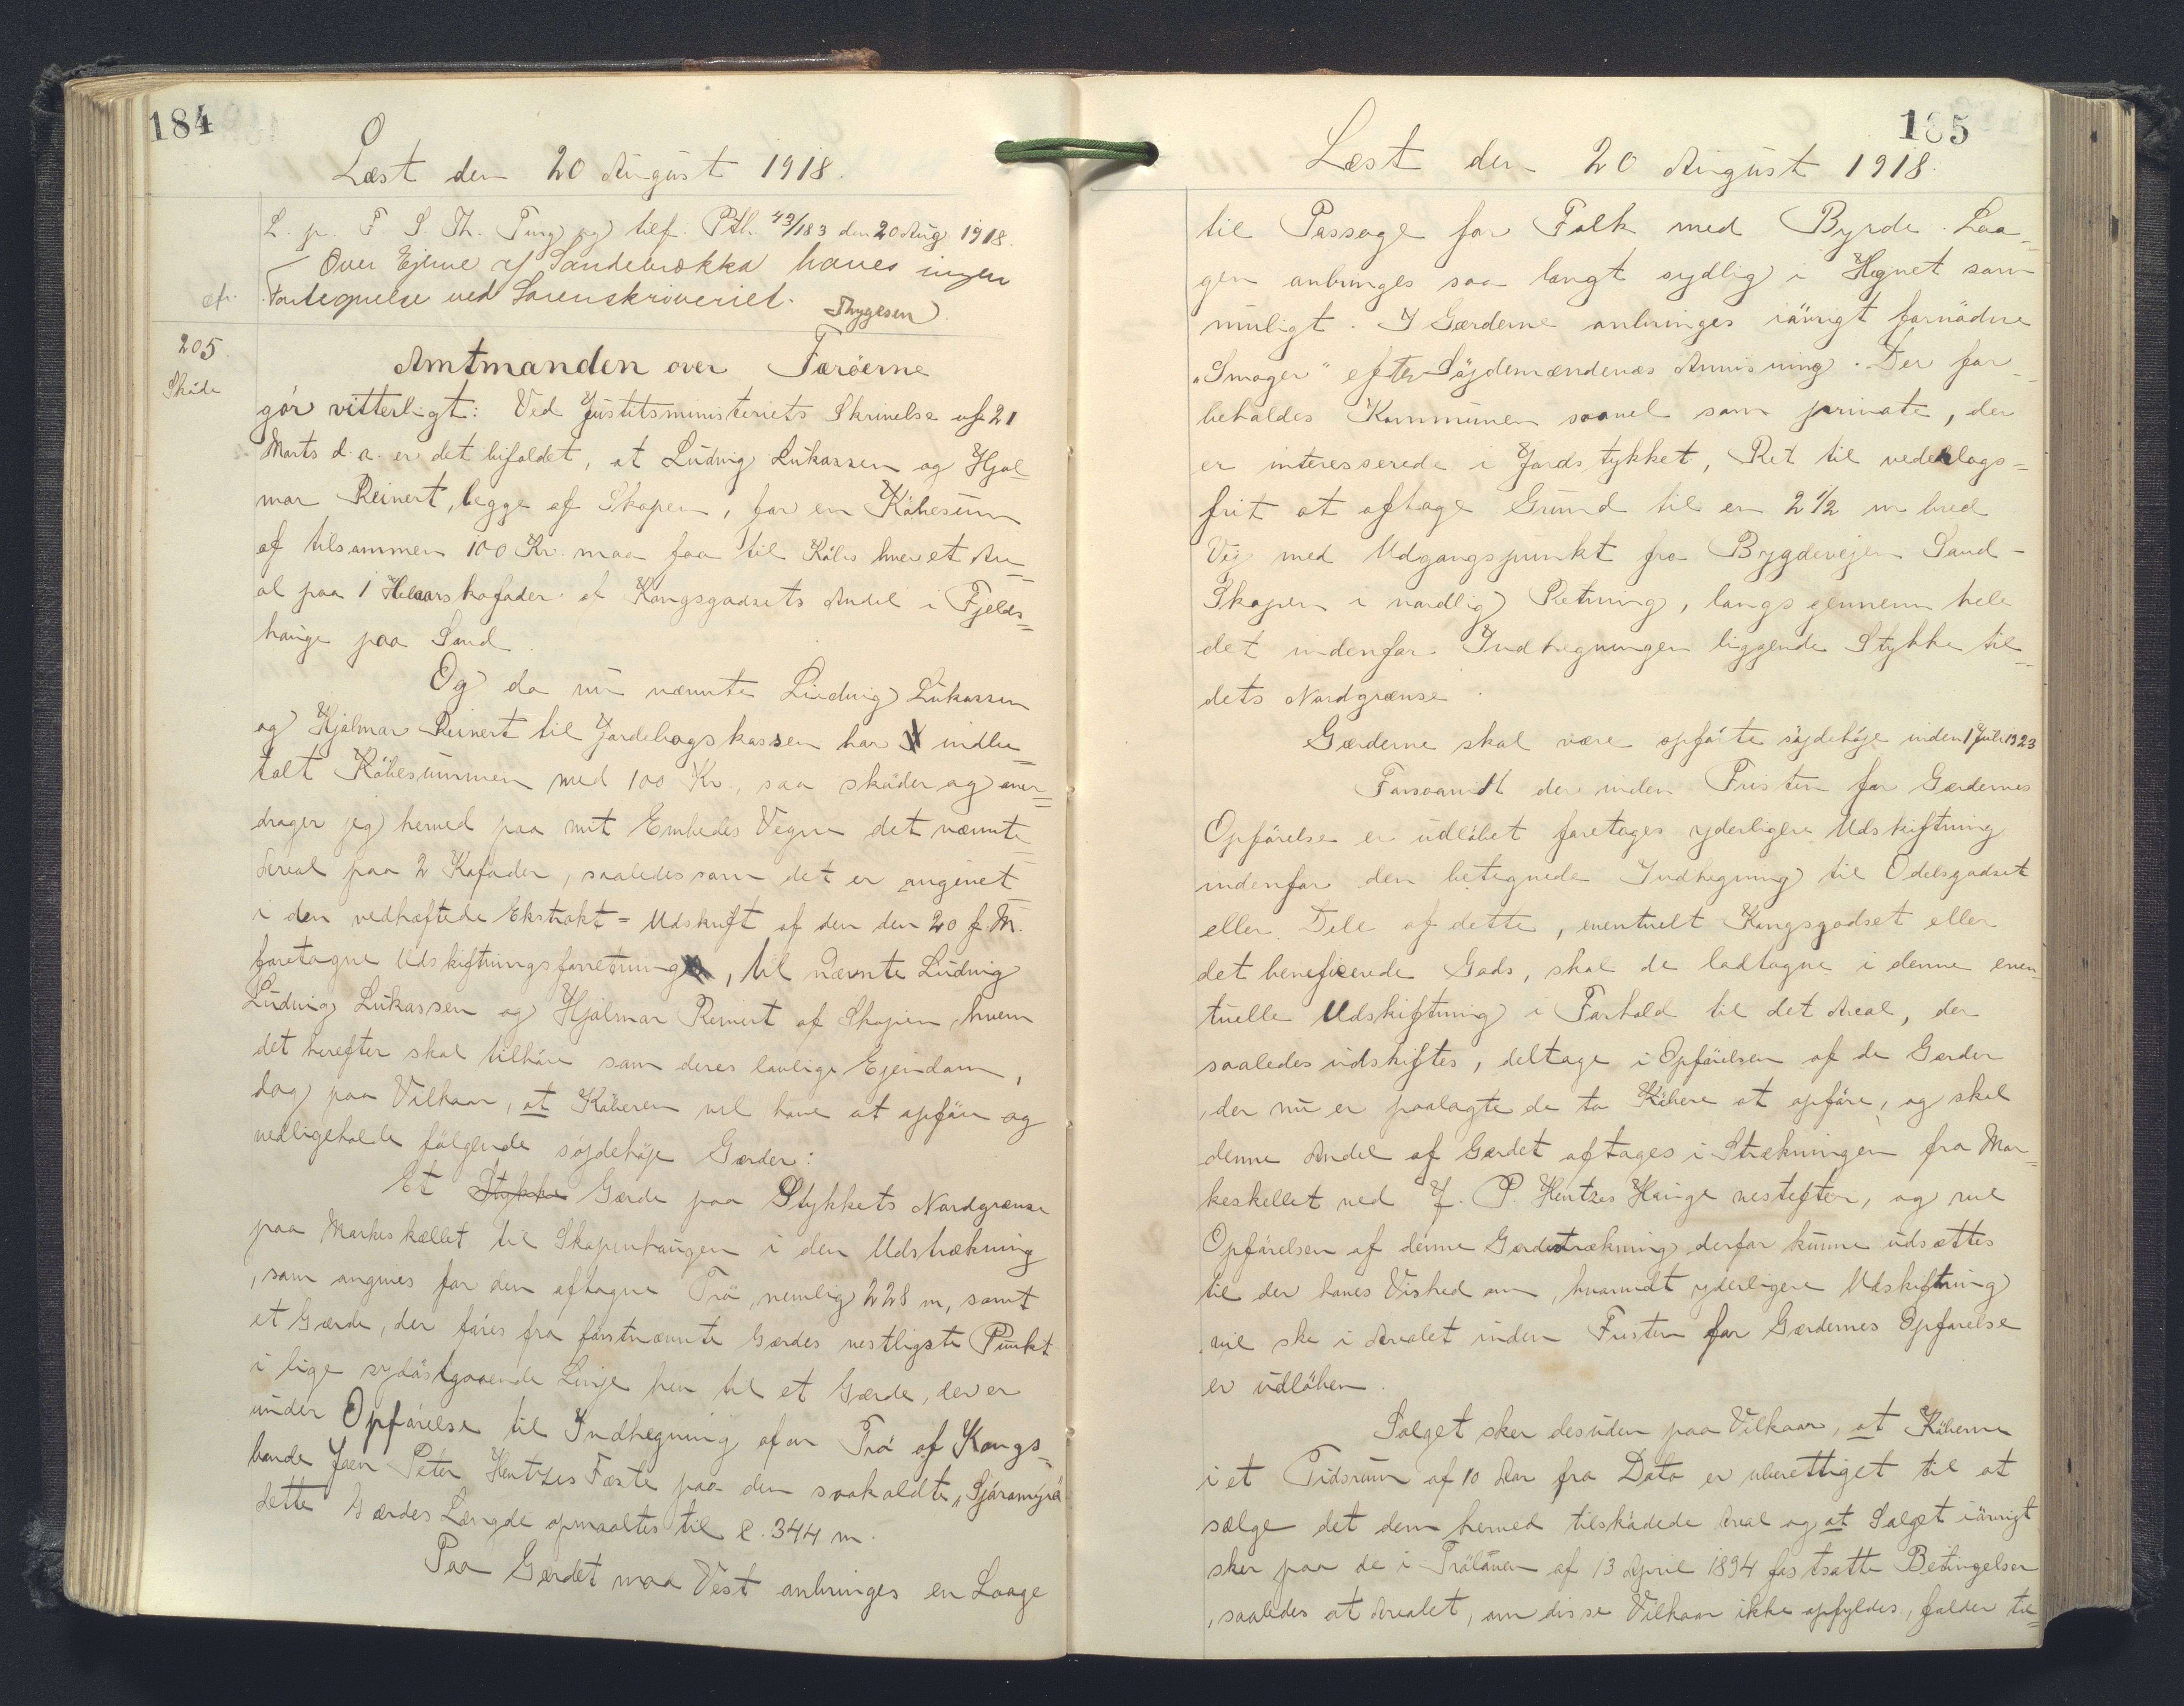 184
Læst den 20 August 1918.
L. p. F. S. Th. Ting og tilf. Ptb. 43/183 den 20 Aug 1918.
Over Ejerne af Sandebrekka haves ingen
Fortegnelse ved Sorenskriveriet. Thygesen
205.
Sköde
Amtmanden over Færöerne
gör vitterligt: Ved Justitsministeriets Skrivelse af 21
Marts d. a. er det bifaldet, at Ludvig Lukassen og Hjal=
mar Reinert, begge af Skopen, for en Köbesum
af tilsammen 100 Kr. maa faa til Köbs hver et Are=
al paa 1 Helaarskofoder af Kongsgodsets Andel i Fjelds=
hauge paa Sand.
Og da nu nævnte Ludvig Lukassen
og Hjalmar Reinert til Jordebogskassen har indbe=
talt Köbesummen med 100 Kr., saa sköder og over=
drager jeg herved paa mit Embedes Vegne det nævnte
Areal paa 2 Kofoder, saaledes som det er angivet
i den vedhæftede Ekstrakt=Udskrift af den den 20 f. M.
foretagne Udskiftningsforretning, til nævnte Ludvig
Ludvig Lukassen og Hjalmar Reinert af Skopen, hvem
det herefter skal tilhöre som deres lovlige Ejendom,
dog paa Vilkaar, at Köberen vil have at opföre og
vedligeholde fölgende söjdehöje Gærder:
Et Stykke Gærde paa Stykkets Nordgrænse
paa Markeskællet til Skopenhaugen i den Udstrækning
, som angives for den aftagne Trö, nemlig 228 m, samt
et Gærde, der föres fra förstnævnte Gærdes vestligste Punkt
i lige sydöstgaaende Linje hen til et Gærde, der er
under Opförelse til Indhegning af en Trö af Kongs=
bonde Joen Peter Hentzes Fæste paa den saakaldte „Sjóramýra“
dette Gærdes Længde opmaaltes til c. 344 m.
Paa Gærdet maa Vest anbringes en Laage
185
Læst den 20 August 1918.
til Passage for Folk med Byrde. Laa=
gen anbringes saa langt sydlig i Hegnet som
muligt. I Gærderne anbringes iövrigt fornödne
„Smoger“ efter Söjdemændenes Anvisning. Der for=
beholdes Kommunen saavel som private, der
er interesserede i Jordstykket, Ret til vederlags=
frit at aftage Grund til en 2 1/2 m bred
Vej med Udgangspunkt fra Bygdevejen Sand-
Skopen i nordlig Retning, langs gennem hele
det indenfor Indhegningen liggende Stykke til
dets Nordgrænse.
Gærderne skal være opförte söjdehöje inden 1 Juli 1923
Forsaavidt der inden Fristen for Gærdernes
Opförelse er udlöbet foretages yderligere Udskiftning
indenfor den betegnede Indhegning til Odelsgodset
eller Dele af dette, eventuelt Kongsgodset eller
det beneficerede Gods, skal de lodtagne i denne even=
tuelle Udskiftning i Forhold til det Areal, der
saaledes udskiftes, deltage i Opförelsen af de Gærder
, der nu er paalagte de to Köbere at opföre, og skal
denne Andel af Gærdet aftages i Strækningen fra Mar=
keskellet ved J. P. Hentzes Hauge vestefter, og vil
Opförelsen af denne Gærdestrækning derfor kunne udsættes
til der haves Vished om, hvorvidt yderligere Udskiftning
vil ske i Arealet inden Fristen for Gærdernes Opförelse
er udlöben.
Salget sker desuden paa Vilkaar, at Köberne
i et Tidsrum af 10 Aar fra Dato er uberettiget til at
sælge det dem herved tilsködede Areal og at Salget iövrigt
sker paa de i Trölöven af 13 April 1894 fastsatte Betingelser
, saaledes at Arealet, om disse Vilkaar ikke opfyldes, falder til=